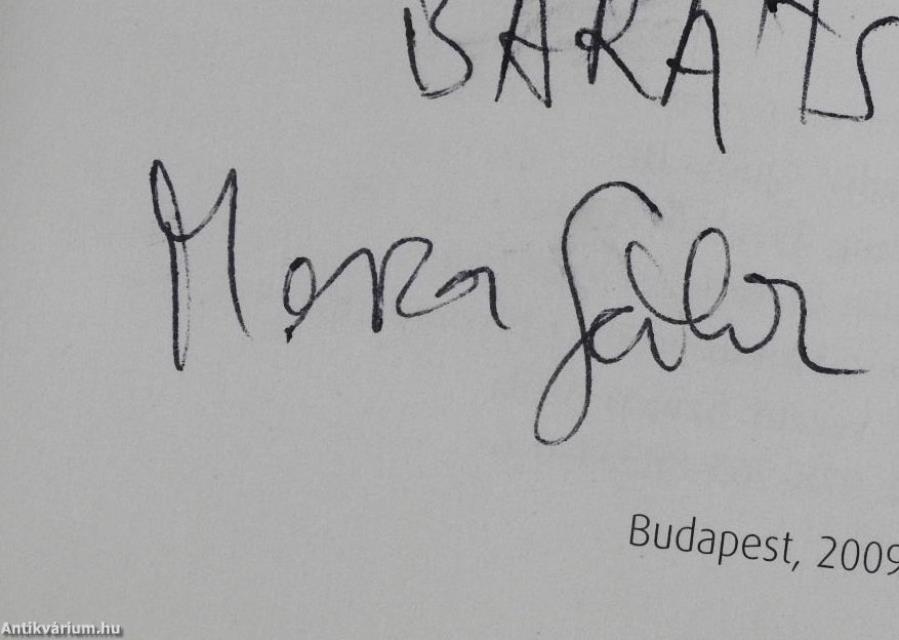 BARÁTS
Mera Gábor
Budapest, 2009
Antikvárium.hu